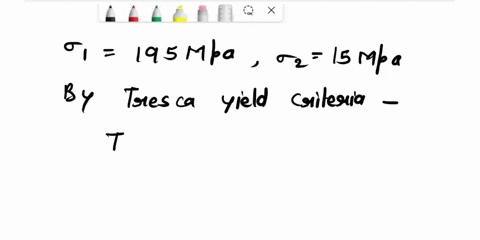 σ1 = 195 Mpa , σ2 = 15 Mpa
By Tresca yield criteria –
T